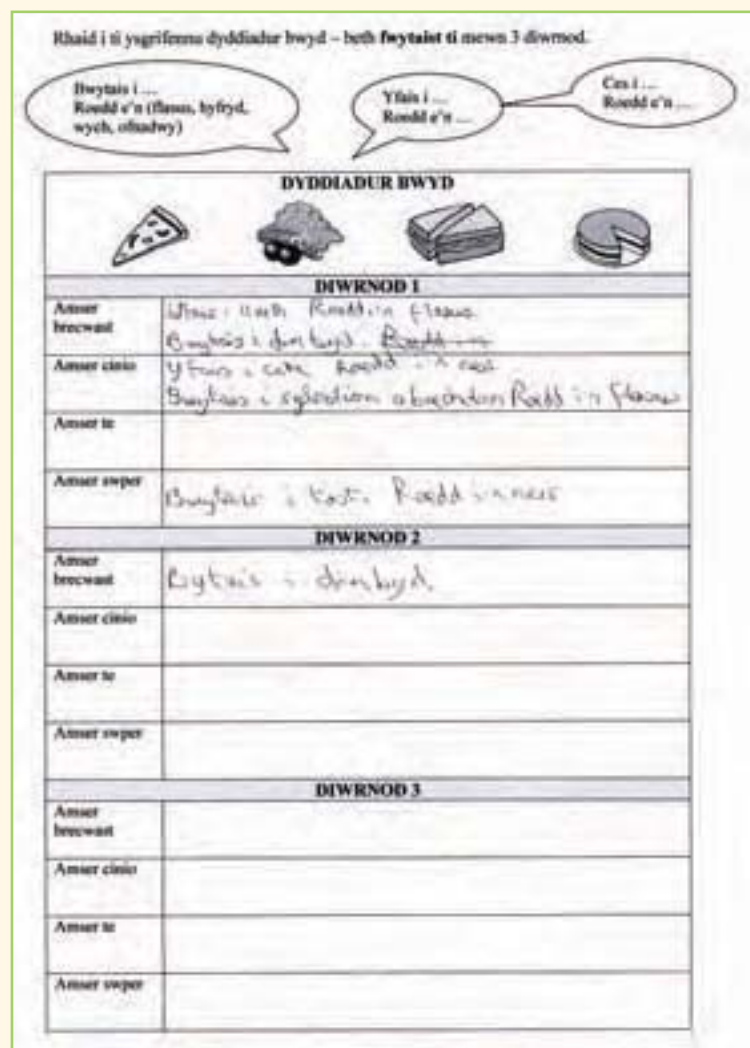 Rhaid i ti ysgrifennu dyddiadur bwyd – beth fwytaist ti mewn 3 diwrnod.
Bwytais i ....
Roedd e'n (flasus, hyfryd,
wych, ofnadwy)
Yfais i ....
Roedd e'n ....
Ces i ....
Roedd e'n ....
DYDDIADUR BWYD
DIWRNOD 1
Amser
brecwast
i llaeth Roedd in flasus
Bwytais i dim byd. Roedd in
Amser cinio
Yfais i Roedd in neis
Bwytais i a Roedd in flasus
Amser te
Amser swper
Bwytais i tost. Roedd in neis
DIWRNOD 2
Amser
brecwast
Bytais i dim byd.
Amser cinio
Amser te
Amser swper
DIWRNOD 3
Amser
brecwast
Amser cinio
Amser te
Amser swper